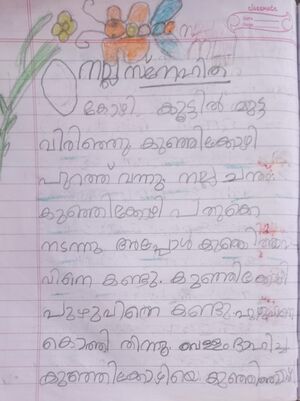 classmate
നല്ല സ്നേഹിത
കോഴി കൂട്ടിൽ മുട്ട
വിരിഞ്ഞു കുഞ്ഞിക്കോഴി
പുറത്ത് വന്നു. നല്ല ചന്തം
കുഞ്ഞിക്കോഴി പതുക്കെ
നടന്നു. അപ്പോൾ കുഞ്ഞി
വിനെ കണ്ടു. കുഞ്ഞിക്കോഴി
പുഴുവിന്നെ കണ്ടു.
കൊത്തി തിന്നു. വെള്ളം ദാഹിച്ച
കുഞ്ഞിക്കോഴിയെ